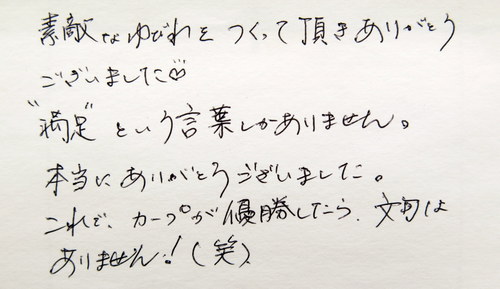 素敵なゆびわをつくって頂きありがとう
ございました♡
"満足"という言葉しかありません。
本当にありがとうございました。
これで、カープが優勝したら、文句は
ありません!(笑)